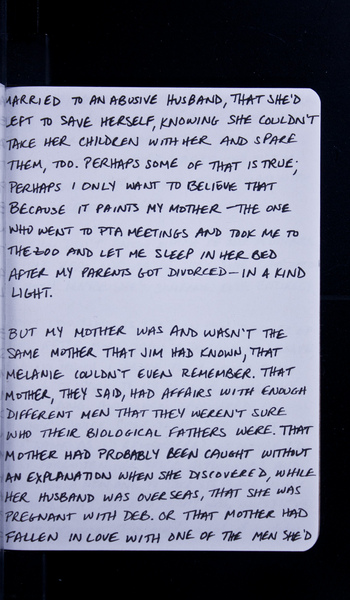 MARRIED TO AN ABUSIVE HUSBAND, THAT SHE'D
LEFT TO SAVE HERSELF, KNOWING SHE COULDN'T
TAKE HER CHILDREN WITH HER AND SPARE
THEM, TOO. PERHAPS SOME OF THAT IS TRUE;
PERHAPS I ONLY WANT TO BELIEVE THAT
BECAUSE IT PAINTS MY MOTHER — THE ONE
WHO WENT TO PTA MEETINGS AND TOOK ME TO
THE ZOO AND LET ME SLEEP IN HER BED
AFTER MY PARENTS GOT DIVORCED — IN A KIND
LIGHT.
BUT MY MOTHER WAS AND WASN'T THE
SAME MOTHER THAT JIM HAD KNOWN, THAT
MELANIE COULDN'T EVEN REMEMBER. THAT
MOTHER, THEY SAID, HAD AFFAIRS WITH ENOUGH
DIFFERENT MEN THAT THEY WEREN'T SURE
WHO THEIR BIOLOGICAL FATHERS WERE. THAT
MOTHER HAD PROBABLY BEEN CAUGHT WITHOUT
AN EXPLANATION WHEN SHE DISCOVERED, WHILE
HER HUSBAND WAS OVERSEAS, THAT SHE WAS
PREGNANT WITH DEB. OR THAT MOTHER HAD
FALLEN IN LOVE WITH ONE OF THE MEN SHE'D